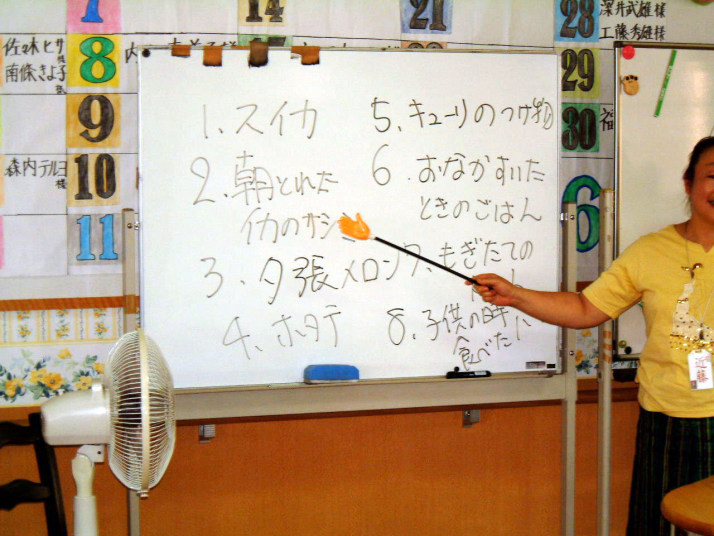 7
14
21
28
深井武雄様
工藤秀雄様
佐々木ヒサ様
南條きよ子
8
29
9
30
森内テルヨ様
10
6
11
1、スイカ
2、朝とれた
イカのサシ
3、夕張メロン
4、ホタテ
5、キューリのつけ物
6、おなかすいた
ときのごはん
7、もぎたての
8、子供の時に
食べた
近藤